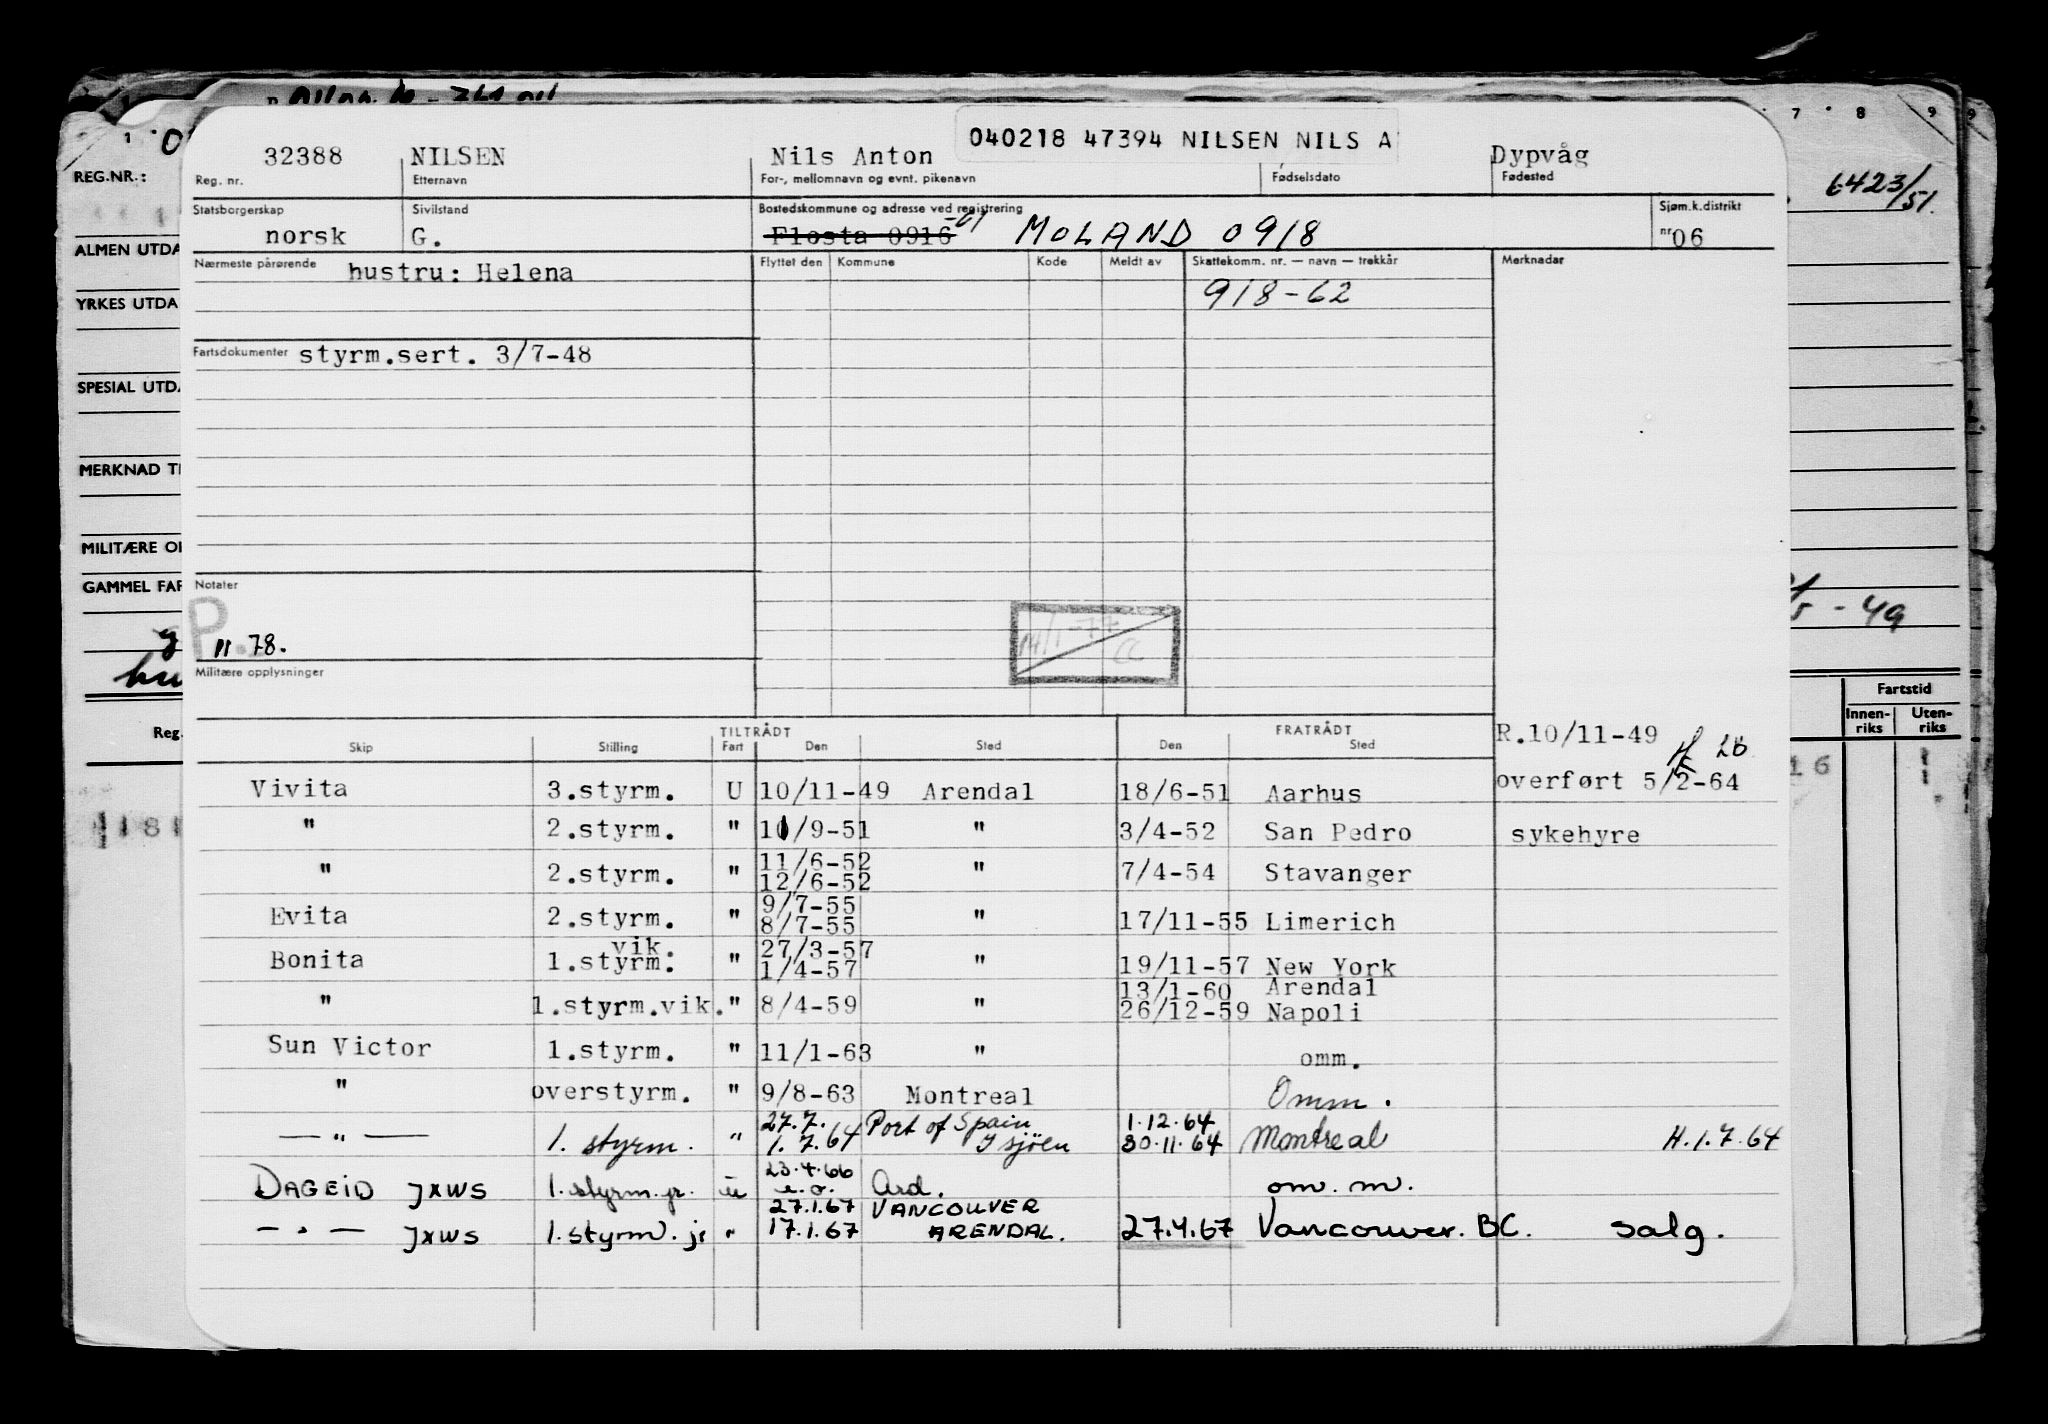 040218 47394 NILSEN NILS A
32388 NILSEN Nils Anton Dypvåg
Reg. nr. Etternavn For-, mellomnavn og evnt. pikenavn Fødselsdato Fødested
Statsborgerskap Sivilstand Bostedskommune og adresse ved registrering Sjøm.k.distrikt
norsk G. Flosta 0916 -61 MOLAND 0918 nr 06
Nærmeste pårørende hustru: Helena Flyttet den Kommune Kode Meldt av Skattekomm. nr. — navn — trekkår Merknader
918-62
Fartsdokumenter styrm.sert. 3/7-48
Notater
P.
11 78.
14/1-77
CC
Militære opplysninger
TILTRÅDT FRATRÅDT R.10/11-49
Skip Stilling Fart Den Sted Den Sted
overført 5/2-64
Vivita 3.styrm. U 10/11-49 Arendal 18/6-51 Aarhus
" 2.styrm. " 10/9-51 " 3/4-52 San Pedro sykehyre
11/6-52
" 2.styrm. " 12/6-52 " 7/4-54 Stavanger
9/7-55
Evita 2.styrm. " 8/7-55 " 17/11-55 Limerich
vik. 27/3-57
Bonita 1.styrm. " 1/4-57 " 19/11-57 New York
13/1-60 Arendal
" 1.styrm.vik. " 8/4-59 " 26/12-59 Napoli
Sun Victor 1.styrm. " 11/1-63 " omm.
" overstyrm. " 9/8-63 Montreal Omm.
27.7. Port of Spain 1.12.64
— " — 1. styrm. " 1.7.64 Isjöen 30.11.64 Montreal H.1.7.64
23.4.66
DAGEID JXWS 1. styrm. jr. u e.o. Ard. om. m.
27.1.67 VANCOUVER
— " — JXWS 1. styrm. jr " 17.1.67 ARENDAL. 27.4.67 Vancouver. BC. salg.
REG.NR.:
ALMEN UTDA
YRKES UTDA
SPESIAL UTDA
MERKNAD TI
MILITÆRE OP
GAMMEL FAR
Reg.
1
7 8 9
6423/51.
- 49
Fartstid
Innenriks Utenriks
16